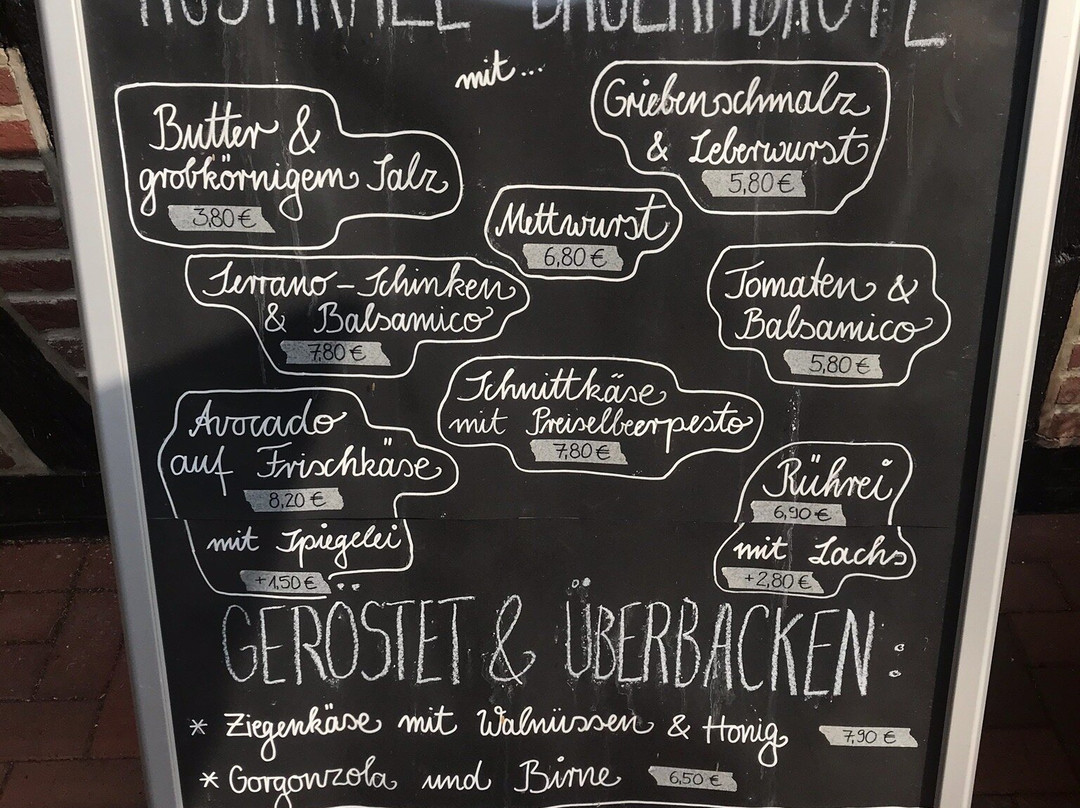 mit...
Butter &
grobkörnigem Salz
3,80 €
Griebenschmalz
& Leberwurst
5,80 €
Mettwurst
6,80 €
Serrano-Schinken
& Balsamico
7,80 €
Tomaten &
Balsamico
5,80 €
Schnittkäse
mit Preiselbeerpesto
7,80 €
Avocado
auf Frischkäse
8,20 €
mit Spiegelei
+1,50 €
Rührei
6,90 €
mit Lachs
+2,80 €
GERÖSTET & ÜBERBACKEN:
* Ziegenkäse mit Walnüssen & Honig 7,90 €
* Gorgonzola und Birne 6,50 €